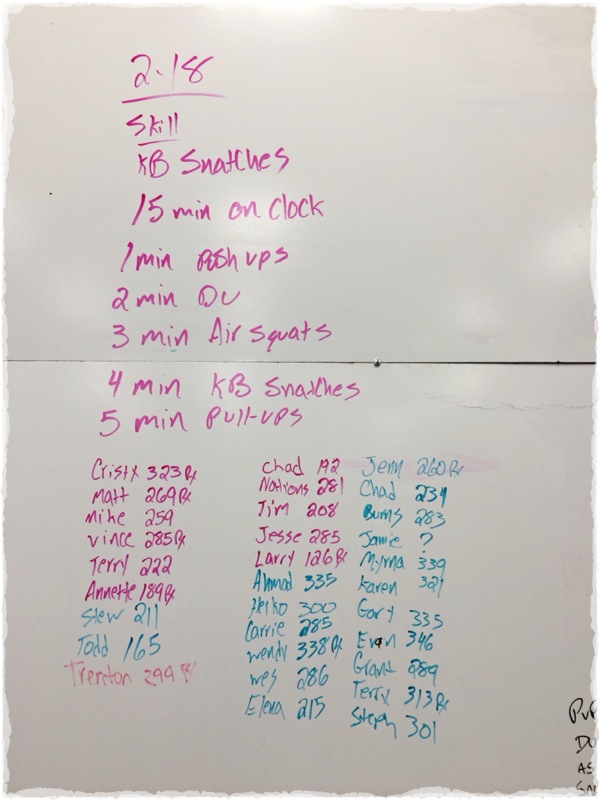 2-18
Skill
KB Snatches
15 min on Clock
1 min push ups
2 min DU
3 min Air squats
4 min KB Snatches
5 min Pull-ups
Cristx 323 Rx
Matt 269 Rx
Mike 259
Vince 285 Rx
Terry 222
Annette 189 Rx
Stew 211
Todd 165
Trenton 299 Rx
Chad 192
Nations 281
Jim 208
Jesse 285
Larry 126 Rx
Ahmad 335
Heiko 300
Carrie 285
Wendy 338 Rx
Wes 286
Elena 215
Jenn 260 Rx
Chad 234
Burns 283
Jamie ?
Myrna 339
Karen 321
Gary 335
Evan 346
Grant 289
Terry 313 Rx
Steph 301
DU
AS